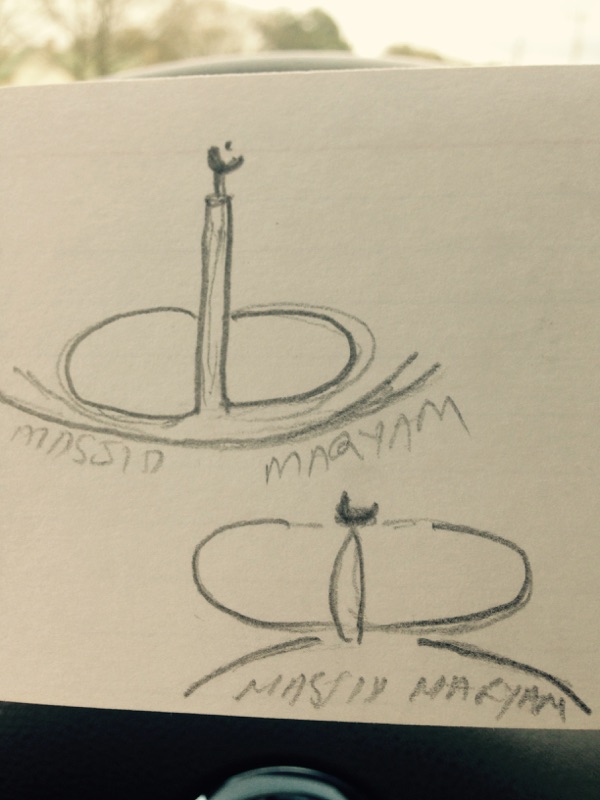 MASJID MARYAM
MASJID MARYAM